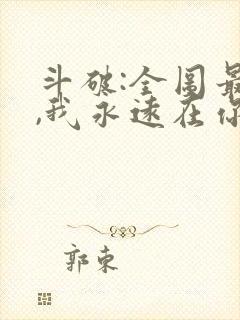 斗破:全图最
,我永远在你
郭东